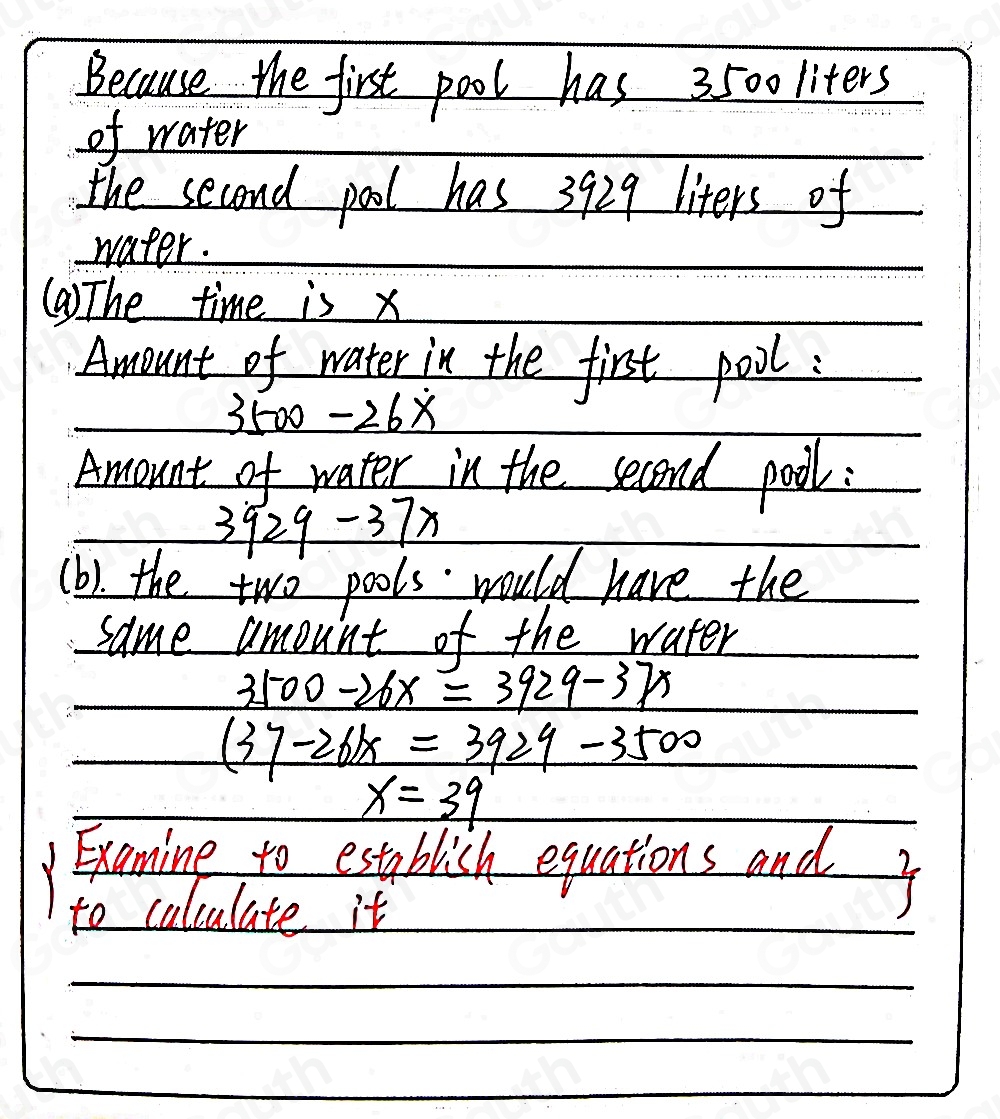 Because the first pool has 3500 liters
of water
the second pool has 3929 liters of
water.
(a) The time is x
Amount of water in the first pool:
3500 - 26x
Amount of water in the second pool:
3929 - 37x
(b). the two pools would have the
same amount of the water
3500 - 26x = 3929 - 37x
(37 - 26)x = 3929 - 3500
x = 39
{ Examine to establish equations and }
to calculate it